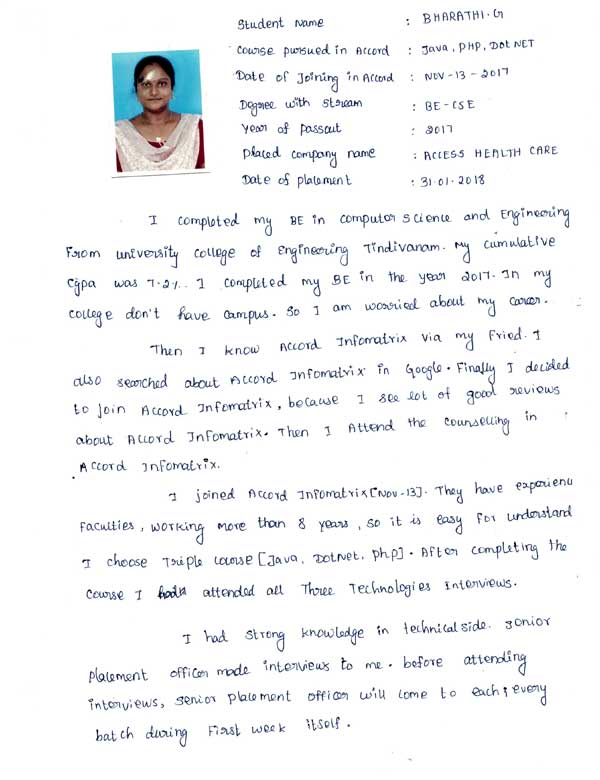 Student Name : BHARATHI.G
Course pursued in Accord : Java, PHP, Dot NET
Date of Joining in Accord : NOV-13-2017
Degree with Stream : BE-CSE
Year of Passout : 2017
Placed company name : ACCESS HEALTH CARE
Date of placement : 31.01.2018
I completed my BE in computer science and Engineering
From university college of Engineering Tindivanam. My cumulative
Cgpa was 7.2%. I completed my BE in the year 2017. In my
college don't have campus. So I am worried about my career.
Then I know Accord Infomatrix via my Fried. I
also searched about Accord Infomatrix in Google. Finally I decided
to join Accord Infomatrix, because I see lot of good reviews
about Accord Infomatrix. Then I Attend the counselling in
Accord Infomatrix.
I joined Accord Infomatrix [Nov-13]. They have experienc
Faculties, working more than 8 years, so it is easy for understand
I choose Triple course [Java, DotNet, PhP]. After completing the
course I attended all Three Technologies Interviews.
I had strong knowledge in technical side. senior
placement officer made interviews to me. before attending
interviews, senior placement officer will come to each & every
batch during First week itself.